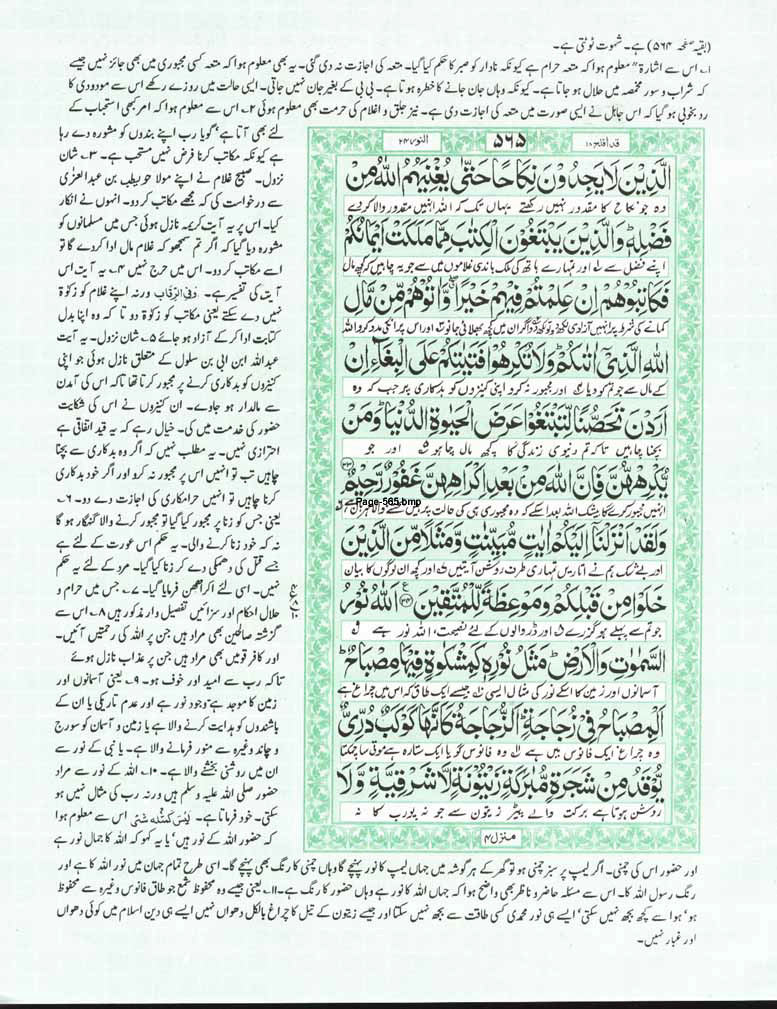 (بقیہ صفحہ ۵۶۴) ہے۔ شہوت ٹوٹتی ہے۔
۱۔ اس سے اشارۃ" معلوم ہوا کہ متعہ حرام ہے کیونکہ نادار کو صبر کا حکم کیا گیا۔ متعہ کی اجازت نہ دی گئی۔ یہ بھی معلوم ہوا کہ متعہ کسی مجبوری میں بھی جائز نہیں جیسے
کہ شراب و سور مخمصہ میں حلال ہو جاتا ہے۔ کیونکہ وہاں جان جانے کا خطرہ ہوتا ہے۔ بی بی کے بغیر جان نہیں جاتی۔ ایسی حالت میں روزے رکھے اس سے مودودی کا
رد بخوبی ہو گیا کہ اس جاہل نے ایسی صورت میں متعہ کی اجازت دی ہے۔ نیز جلق و اغلام کی حرمت بھی معلوم ہوئی ۲۔ اس سے معلوم ہوا کہ امر کبھی استحباب کے
لئے بھی آتا ہے' گویا رب اپنے بندوں کو مشورہ دے رہا
ہے کیونکہ مکاتب کرنا فرض نہیں مستحب ہے۔ ۳۔ شان
نزول۔ صبیح غلام نے اپنے مولا حویطب بن عبدالعزیٰ
سے درخواست کی کہ مجھے مکاتب کر دو۔ انہوں نے انکار
کیا۔ اس پر یہ آیت کریمہ نازل ہوئی جس میں مسلمانوں کو
مشورہ دیا گیا کہ اگر تم سمجھو کہ غلام مال ادا کر دے گا تو
اسے مکاتب کر دو۔ اس میں حرج نہیں ۴۔ یہ آیت اس
آیت کی تفسیر ہے۔ وَفِی الرِّقَابِ ورنہ اپنے غلام کو زکوۃ
نہیں دے سکتے یعنی مکاتب کو زکوۃ دو تا کہ وہ اپنا بدل
کتابت ادا کر کے آزاد ہو جائے ۵۔ شان نزول۔ یہ آیت
عبداللہ ابن ابی بن سلول کے متعلق نازل ہوئی جو اپنی
کنیزوں کو بدکاری کرنے پر مجبور کرتا تھا تا کہ اس کی آمدن
سے مالدار ہو جاوے۔ ان کنیزوں نے اس کی شکایت
حضور کی خدمت میں کی۔ خیال رہے کہ یہ قید اتفاقی ہے
احترازی نہیں۔ یہ مطلب نہیں کہ اگر وہ بدکاری سے بچنا
چاہیں تب تو انہیں اس پر مجبور نہ کرو اور اگر خود بدکاری
کرنا چاہیں تو انہیں حرامکاری کی اجازت دے دو۔ ۶۔
یعنی جس کو زنا پر مجبور کیا گیا تو مجبور کرنے والا گنہگار ہو گا
نہ کہ خود زنا کرنے والی۔ یہ حکم اس عورت کے لئے ہے
جسے قتل کی دھمکی دے کر زنا کیا گیا۔ مرد کے لئے یہ حکم
نہیں۔ اسی لئے اکراھھن فرمایا گیا۔ ۷۔ جس میں حرام و
حلال احکام اور سزائیں تفصیل وار مذکور ہیں ۸۔ اس سے
گزشتہ صالحین بھی مراد ہیں جن پر اللہ کی رحمتیں آئیں۔
اور کافر قومیں بھی مراد ہیں جن پر عذاب نازل ہوئے
تاکہ رب سے امید اور خوف ہو۔ ۹۔ یعنی آسمانوں اور
زمین کا موجد ہے وجود نور ہے اور عدم تاریکی یا ان کے
باشندوں کو ہدایت کرنے والا ہے یا زمین و آسمان کو سورج
و چاند وغیرہ سے منور فرمانے والا ہے۔ یا نبی کے نور سے
ان میں روشنی بخشنے والا ہے۔ ۱۰۔ اللہ کے نور سے مراد
حضور صلی اللہ علیہ وسلم ہیں ورنہ رب کی مثال نہیں ہو
سکتی۔ خود فرماتا ہے۔ لَیْسَ کَمِثْلِہٖ شَیْءٌ اس سے معلوم ہوا
کہ حضور اللہ کے نور ہیں' یا یہ کہو کہ اللہ کا جمال نور ہے
قد افلح ۱۸
۵۶۵
النور ۲۴
الَّذِیْنَ لَا یَجِدُوْنَ نِکَاحًا حَتّٰی یُغْنِیَهُمُ اللّٰهُ مِنْ
وہ جو نکاح کا مقدور نہیں رکھتے یہاں تک کہ اللہ انہیں مقدور والا کردے
فَضْلِهٖ وَالَّذِیْنَ یَبْتَغُوْنَ الْکِتٰبَ مِمَّا مَلَکَتْ اَیْمَانُکُمْ
اپنے فضل سے ۱ اور تمہارے ہاتھ کی ملک باندی غلاموں میں سے جو یہ چاہیں کہ کچھ مال
فَکَاتِبُوْهُمْ اِنْ عَلِمْتُمْ فِیْهِمْ خَیْرًا وَّاٰتُوْهُمْ مِّنْ مَّالِ
کمانے کی شرط پر انہیں آزادی لکھ دو تو لکھ دو ۲ اگر ان میں کچھ بھلائی جانو ۳ اور اس پر انکی مدد کرو اللہ
اللّٰهِ الَّذِیْۤ اٰتٰىکُمْ وَلَا تُکْرِهُوْا فَتَیٰتِکُمْ عَلَی الْبِغَآءِ اِنْ
کے مال سے جو تم کو دیا ۴ اور مجبور نہ کرو اپنی کنیزوں کو بدکاری پر جب کہ وہ
اَرَدْنَ تَحَصُّنًا لِّتَبْتَغُوْا عَرَضَ الْحَیٰوةِ الدُّنْیَا وَمَنْ
بچنا چاہیں تاکہ تم دنیوی زندگی کا کچھ مال چاہو ۵ اور جو
یُّکْرِهْهُّنَّ فَاِنَّ اللّٰهَ مِنْۢ بَعْدِ اِکْرَاهِهِنَّ غَفُوْرٌ رَّحِیْمٌ
Page-565.bmp
انہیں مجبور کرے گا بیشک اللہ بعد اسکے کہ وہ مجبوری ہی کی حالت پر رہیں بخشنے والا مہربان ہے
وَلَقَدْ اَنْزَلْنَاۤ اِلَیْکُمْ اٰیٰتٍ مُّبَیِّنٰتٍ وَّمَثَلًا مِّنَ الَّذِیْنَ
اور بے شک ہم نے اتاریں تمہاری طرف روشن آیتیں ۷ اور کچھ ان لوگوں کا بیان
خَلَوْا مِنْ قَبْلِکُمْ وَمَوْعِظَةً لِّلْمُتَّقِیْنَ اَللّٰهُ نُوْرُ
جو تم سے پہلے ہو گزرے ۸ اور ڈر والوں کے لئے نصیحت، اللہ نور ہے ۹
السَّمٰوٰتِ وَالْاَرْضِ مَثَلُ نُوْرِهٖ کَمِشْکٰوةٍ فِیْهَا مِصْبَاحٌ
آسمانوں اور زمین کا اسکے نور کی مثال ایسی ۱۰ جیسے ایک طاق کہ اس میں چراغ ہے
اَلْمِصْبَاحُ فِیْ زُجَاجَةٍ اَلزُّجَاجَةُ کَاَنَّهَا کَوْکَبٌ دُرِّیٌّ
وہ چراغ ایک فانوس میں ہے ۱۱ وہ فانوس گویا ایک ستارہ ہے موتی سا چمکتا
یُّوْقَدُ مِنْ شَجَرَةٍ مُّبٰرَکَةٍ زَیْتُوْنَةٍ لَّا شَرْقِیَّةٍ وَّلَا
روشن ہوتا ہے برکت والے پیڑ زیتون سے جو نہ پورب کا نہ
منزل ۴
اور حضور اس کی چمنی۔ اگر لیمپ پر سبز چمنی ہو تو گھر کے ہر گوشہ میں جہاں لیمپ کا نور پہنچے گا وہاں چمنی کا رنگ بھی پہنچے گا۔ اسی طرح تمام جہان میں نور اللہ کا ہے اور
رنگ رسول اللہ کا۔ اس سے مسئلہ حاضر و ناظر بھی واضح ہوا کہ جہاں اللہ کا نور ہے وہاں حضور کا رنگ ہے۔ ۱۱۔ یعنی جیسے وہ محفوظ شمع جو طاق فانوس وغیرہ سے محفوظ
ہو' ہوا سے کچھ بجھ نہیں سکتی' ایسے ہی نور محمدی کسی طاقت سے بجھ نہیں سکتا اور جیسے زیتون کے تیل کا چراغ بالکل دھواں نہیں ایسے ہی دین اسلام میں کوئی دھواں
اور غبار نہیں۔